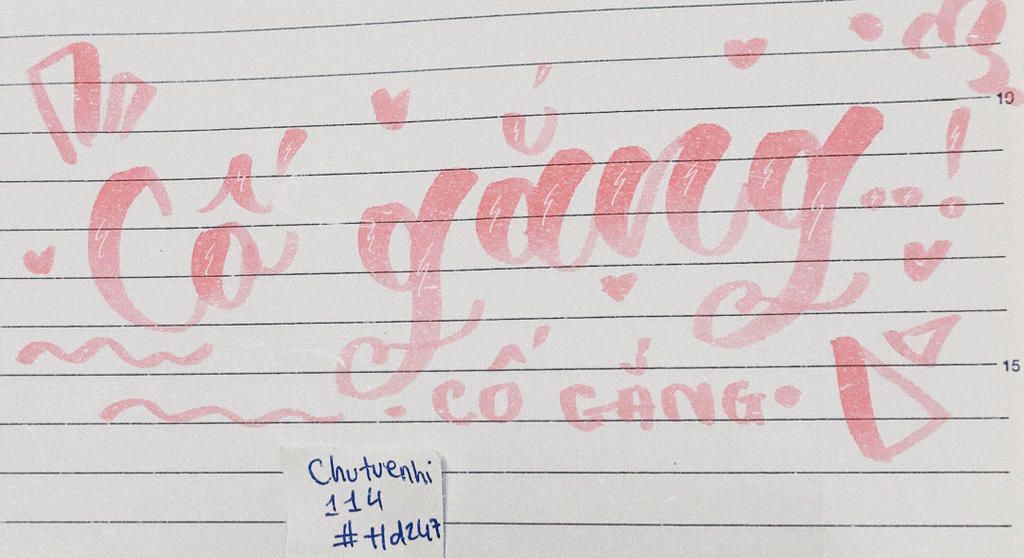 10
Cố gắng...!
15
• CỐ GẮNG •
Chutuenhi
114
#Hd247